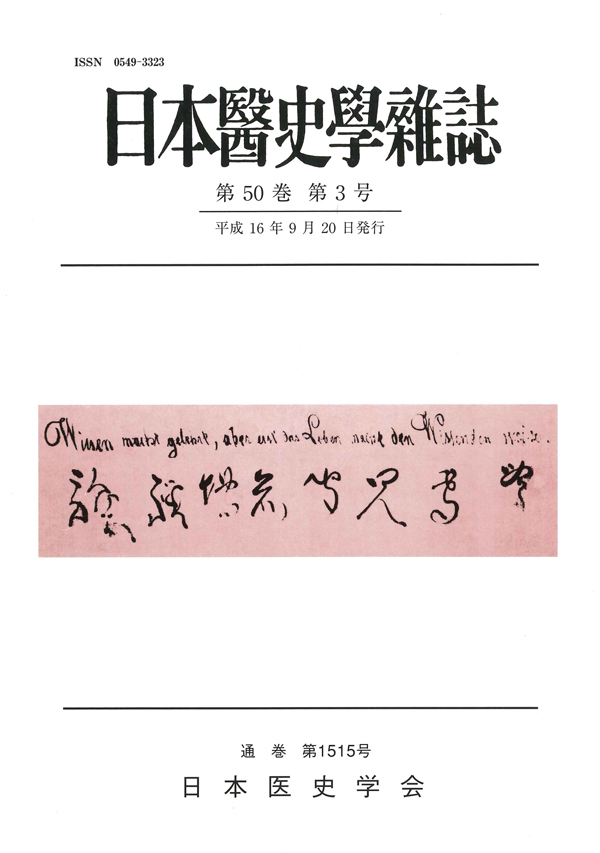 ISSN 0549-3323
日本醫史學雜誌
第 50 巻 第 3 号
平成 16 年 9 月 20 日発行
Wissen macht gelehrt, aber erst das Leben macht den Wissenden weise.
通 巻 第1515号
日 本 医 史 学 会